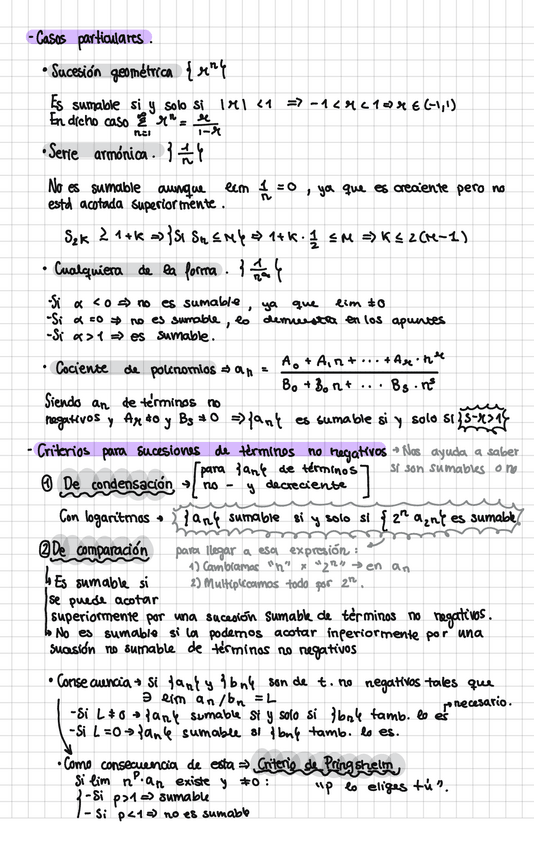 - Casos particulares.
• Sucesión geométrica {r^n}
Es sumable si y solo si |r| < 1 ⇒ -1 < r < 1 ⇒ r ∈ (-1,1)
En dicho caso ∑_{n=1}^∞ r^n = r/(1-r)
• Serie armónica. {1/n}
No es sumable aunque lim 1/n = 0, ya que es creciente pero no
está acotada superiormente.
S_{2^k} ≥ 1+k ⇒ {Si S_n ≤ M} ⇒ 1+k · 1/2 ≤ M ⇒ K ≤ 2(M-1)
• Cualquiera de la forma. {1/n^α}
-Si α < 0 ⇒ no es sumable, ya que lim ≠ 0
-Si α = 0 ⇒ no es sumable, lo demuestra en los apuntes
-Si α > 1 ⇒ es sumable.
• Cociente de polinomios ⇒ a_n = (A_0 + A_1 n + ··· + A_r · n^r) / (B_0 + B_0 n + ··· B_s · n^s)
Siendo a_n de términos no
negativos y A_r ≠ 0 y B_s ≠ 0 ⇒ {a_n} es sumable si y solo si {s-r > 1}
- Criterios para sucesiones de términos no negativos → Nos ayuda a saber
si son sumables o no
① De condensación → [para {a_n} de términos
no - y decreciente]
Con logaritmos → {a_n} sumable si y solo si {2^n a_{2^n}} es sumable
② De comparación
para llegar a esa expresión:
1) Cambiamos "n" x "2^n" → en a_n
2) Multiplicamos todo por 2^n.
↳ Es sumable si
se puede acotar
superiormente por una sucesión sumable de términos no negativos.
↳ No es sumable si la podemos acotar inferiormente por una
sucesión no sumable de términos no negativos
• Consecuencia → Si {a_n} y {b_n} son de t. no negativos tales que
∃ lim a_n/b_n = L
necesario.
-Si L ≠ 0 → {a_n} sumable si y solo si {b_n} tamb. lo es
-Si L = 0 → {a_n} sumable si {b_n} tamb. lo es.
• Como consecuencia de esta ⇒ Criterio de Pringshelm
Si lim n^p · a_n existe y ≠ 0: "p lo eliges tú".
-Si p > 1 ⇒ sumable
- Si p < 1 ⇒ no es sumable